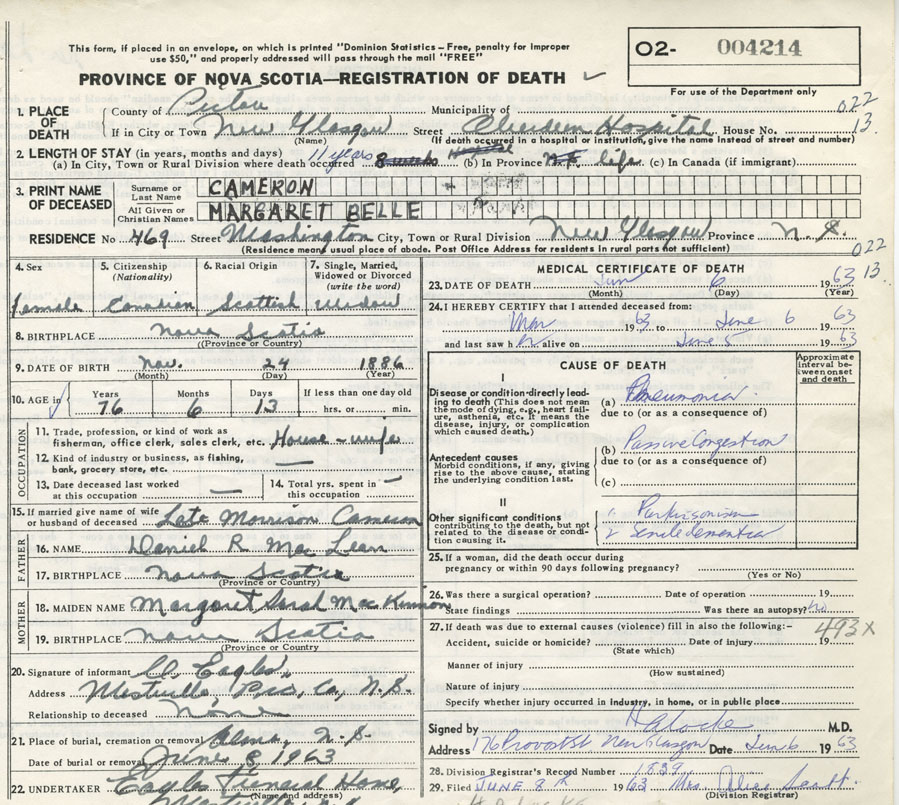 This form, if placed in an envelope, on which is printed "Dominion Statistics – Free, penalty for improper
use $50," and properly addressed will pass through the mail "FREE"
PROVINCE OF NOVA SCOTIA—REGISTRATION OF DEATH ✓
O2- 004214
For use of the Department only
022
13.
1. PLACE OF DEATH
County of Pictou Municipality of
If in City or Town New Glasgow Street Aberdeen Hospital House No.
(Name) (If death occurred in a hospital or institution, give the name instead of street and number)
2. LENGTH OF STAY (in years, months and days)
(a) In City, Town or Rural Division where death occurred 11 years 8 weeks (b) In Province N.S. life (c) In Canada (if immigrant)
3. PRINT NAME OF DECEASED
Surname or Last Name CAMERON
All Given or Christian Names MARGARET BELLE
RESIDENCE No 469 Street Washington City, Town or Rural Division New Glasgow Province N.S.
(Residence means usual place of abode. Post Office Address for residents in rural parts not sufficient)
022
13.
4. Sex Female
5. Citizenship (Nationality) Canadian
6. Racial Origin Scottish
7. Single, Married, Widowed or Divorced (write the word) Widow
8. BIRTHPLACE Nova Scotia
(Province or Country)
9. DATE OF BIRTH Nov. 24 1886
(Month) (Day) (Year)
10. AGE in Years 76 Months 6 Days 13 If less than one day old hrs. or min.
OCCUPATION
11. Trade, profession, or kind of work as fisherman, office clerk, sales clerk, etc. House-wife
12. Kind of industry or business, as fishing, bank, grocery store, etc. —
13. Date deceased last worked at this occupation —
14. Total yrs. spent in this occupation —
15. If married give name of wife or husband of deceased Late Morrison Cameron
FATHER
16. NAME Daniel R MacLean
17. BIRTHPLACE Nova Scotia
(Province or Country)
MOTHER
18. MAIDEN NAME Margaret Sarah MacKinnon
19. BIRTHPLACE Nova Scotia
(Province or Country
20. Signature of informant Eagles,
Address Westville Pic. Co, N.S.
Relationship to deceased none
21. Place of burial, cremation or removal Alma, N.S.
Date of burial or removal June 8, 1963
22. UNDERTAKER Eagles Funeral Home,
(Name and address)
MEDICAL CERTIFICATE OF DEATH
23. DATE OF DEATH Jun 6 1963
(Month) (Day) (Year)
24. I HEREBY CERTIFY that I attended deceased from:
Mar 1963 to June 6 1963
and last saw her alive on June 5 1963
CAUSE OF DEATH
Approximate interval between onset and death
I
Disease or condition directly leading to death (This does not mean the mode of dying, e.g., heart failure, asthenia, etc. It means the disease, injury, or complication which caused death.)
(a) Pneumonia
due to (or as a consequence of)
Antecedent causes
Morbid conditions, if any, giving rise to the above cause, stating the underlying condition last.
(b) Passive Congestion
due to (or as a consequence of)
(c)
II
Other significant conditions contributing to the death, but not related to the disease or condition causing it.
1. Parkinsonism
2 Senile dementia
25. If a woman, did the death occur during
pregnancy or within 90 days following pregnancy?
(Yes or No)
26. Was there a surgical operation? Date of operation 19
State findings Was there an autopsy? no
27. If death was due to external causes (violence) fill in also the following:–
493X
Accident, suicide or homicide? Date of injury 19
(State which)
Manner of injury
(How sustained)
Nature of injury
Specify whether injury occurred in industry, in home, or in public place
Signed by M.D.
Address 176 Provost St New Glasgow Date Jun 6 1963
28. Division Registrar's Record Number 1839
29. Filed JUNE 8th 1963 Mrs. Alice
(Division Registrar)